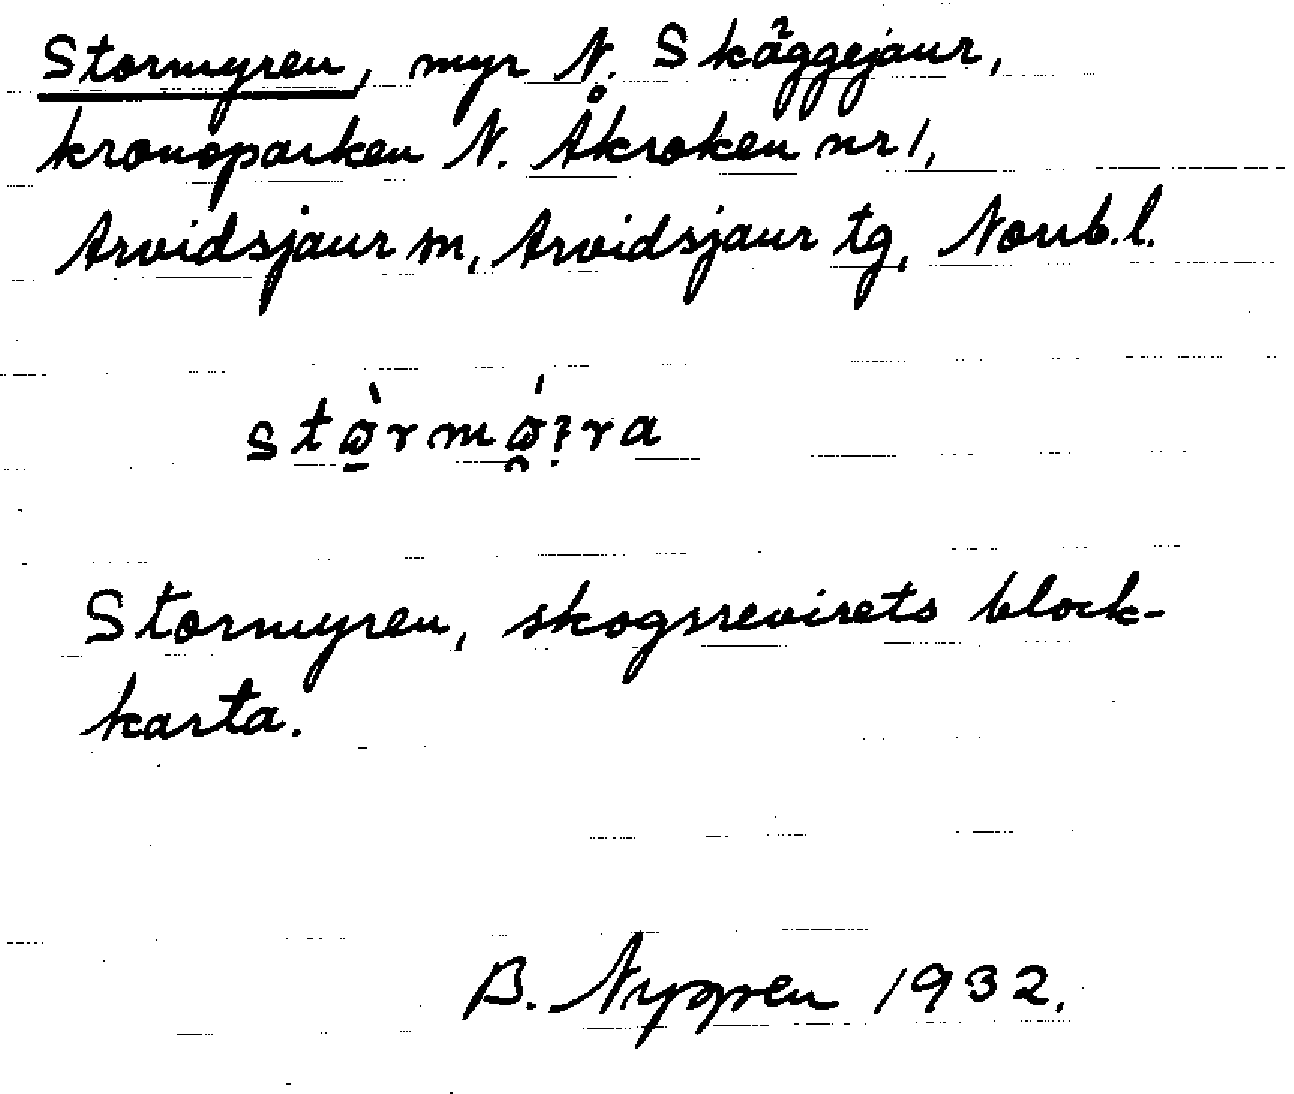 Stormyren, myr N. Skäggejaur,
kronoparken N. Åkroken nr 1,
Arvidsjaur sn, Arvidsjaur tg, Norrb.l.
Stormyren, skogsrevirets block-
karta.
B. Nygren 1932.